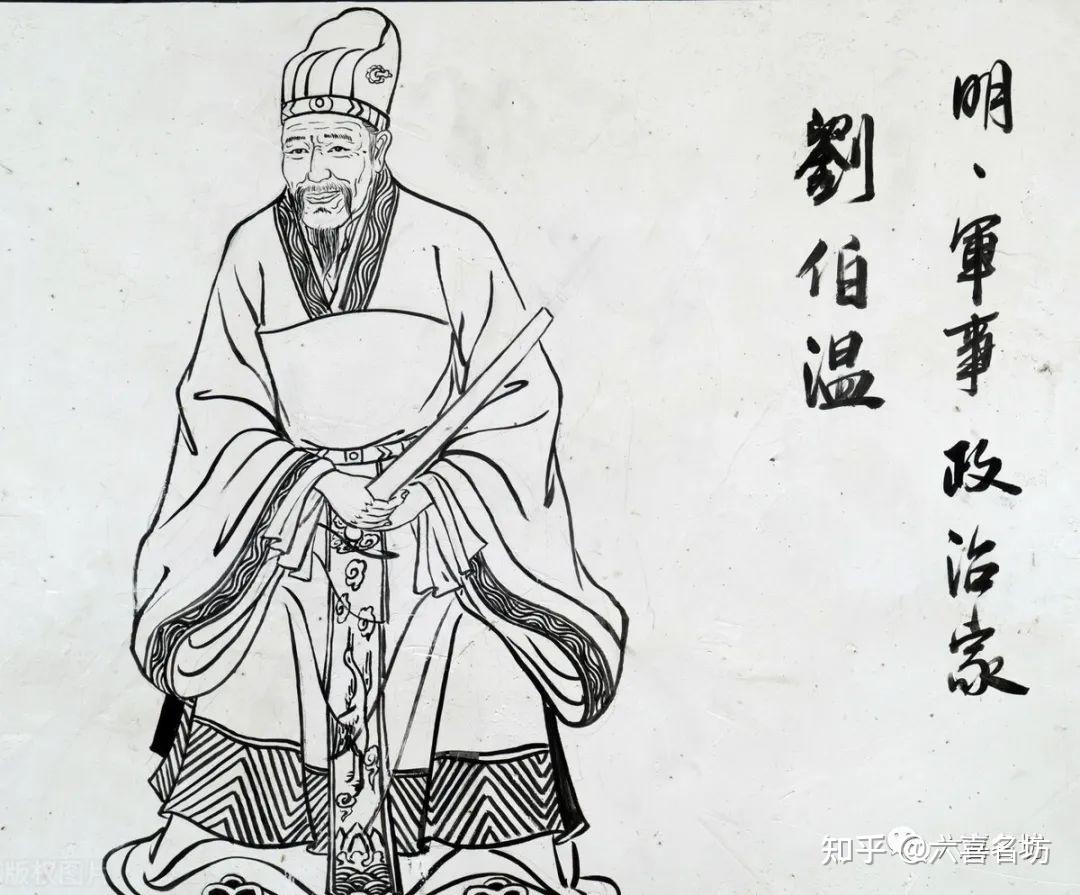 明、軍事政治家
劉伯温
知乎 @六喜名坊
版权图片